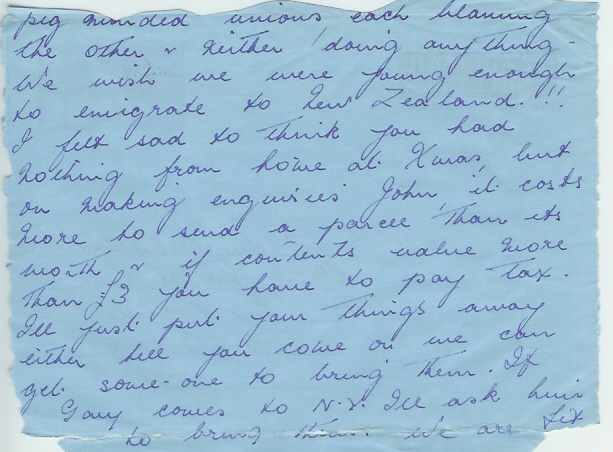 pig minded unions each blaming
the other & neither doing anything.
We wish we were young enough
to emigrate to New Zealand.!!
I felt sad to think you had
nothing from home at Xmas, but
on making enquiries John, it costs
more to send a parcel than its
worth & if contents value more
than £3 you have to pay tax.
I'll just put your things away
either till you come or we can
get some-one to bring them. If
Gary comes to N.Y. I'll ask him
to bring them. We are